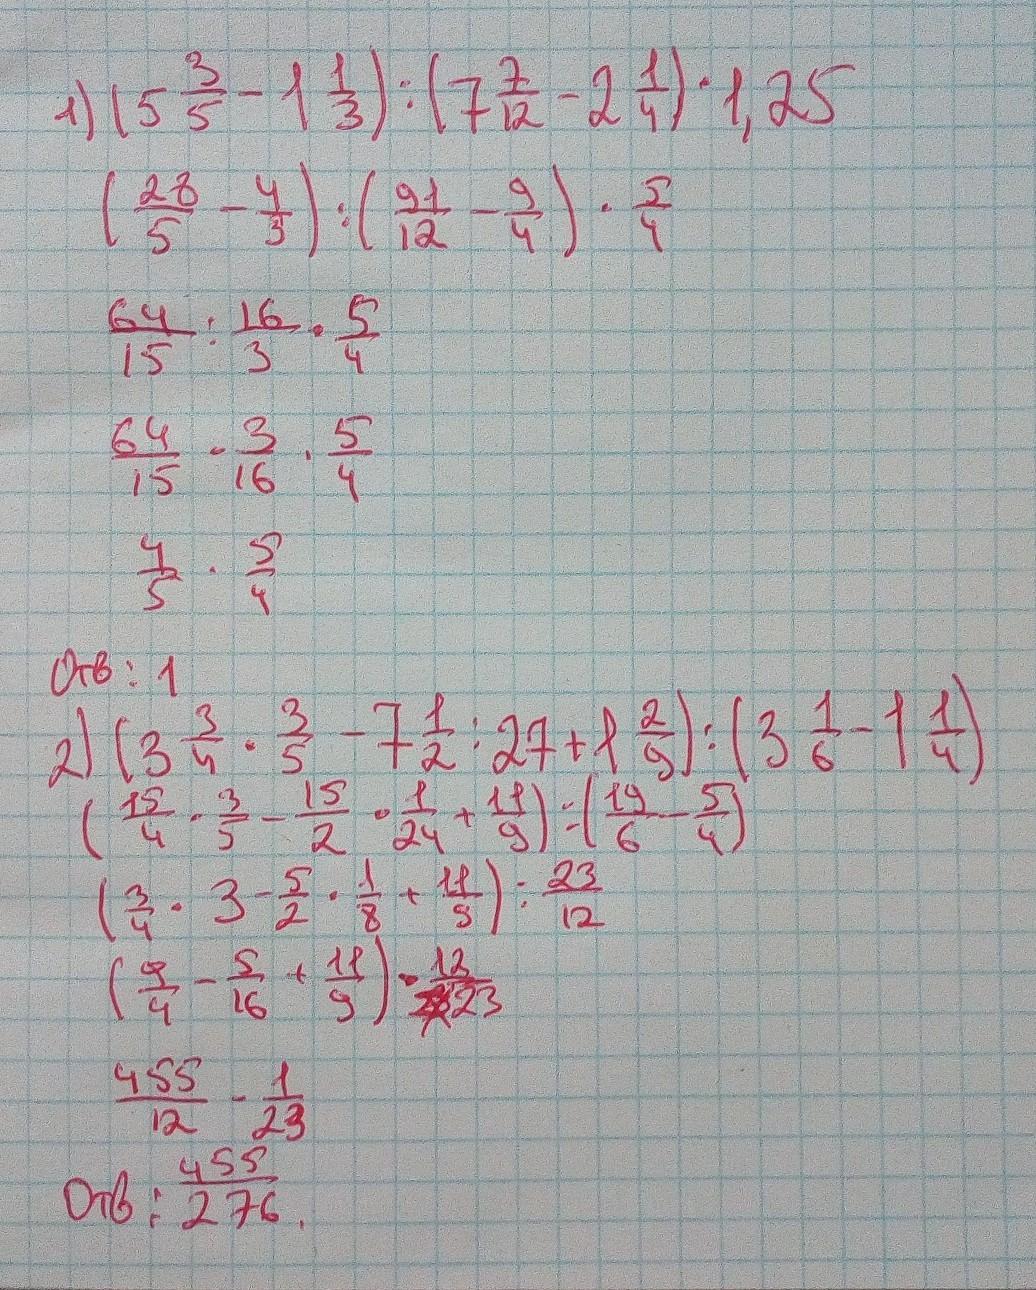 1) (5 3/5 - 1 1/3) : (7 7/12 - 2 1/4) · 1,25
(28/5 - 4/3) : (91/12 - 9/4) · 5/4
64/15 : 16/3 · 5/4
64/15 · 3/16 · 5/4
4/5 · 5/4
Отв: 1
2) (3 3/4 · 3/5 - 7 1/2 : 27 + 1 2/9) : (3 1/6 - 1 1/4)
(15/4 · 3/5 - 15/2 · 1/24 + 11/9) : (19/6 - 5/4)
(3/4 · 3 - 5/2 · 1/8 + 11/9) : 23/12
(9/4 - 5/16 + 11/9) · 12/23
455/12 - 1/23
Отв: 455/276.